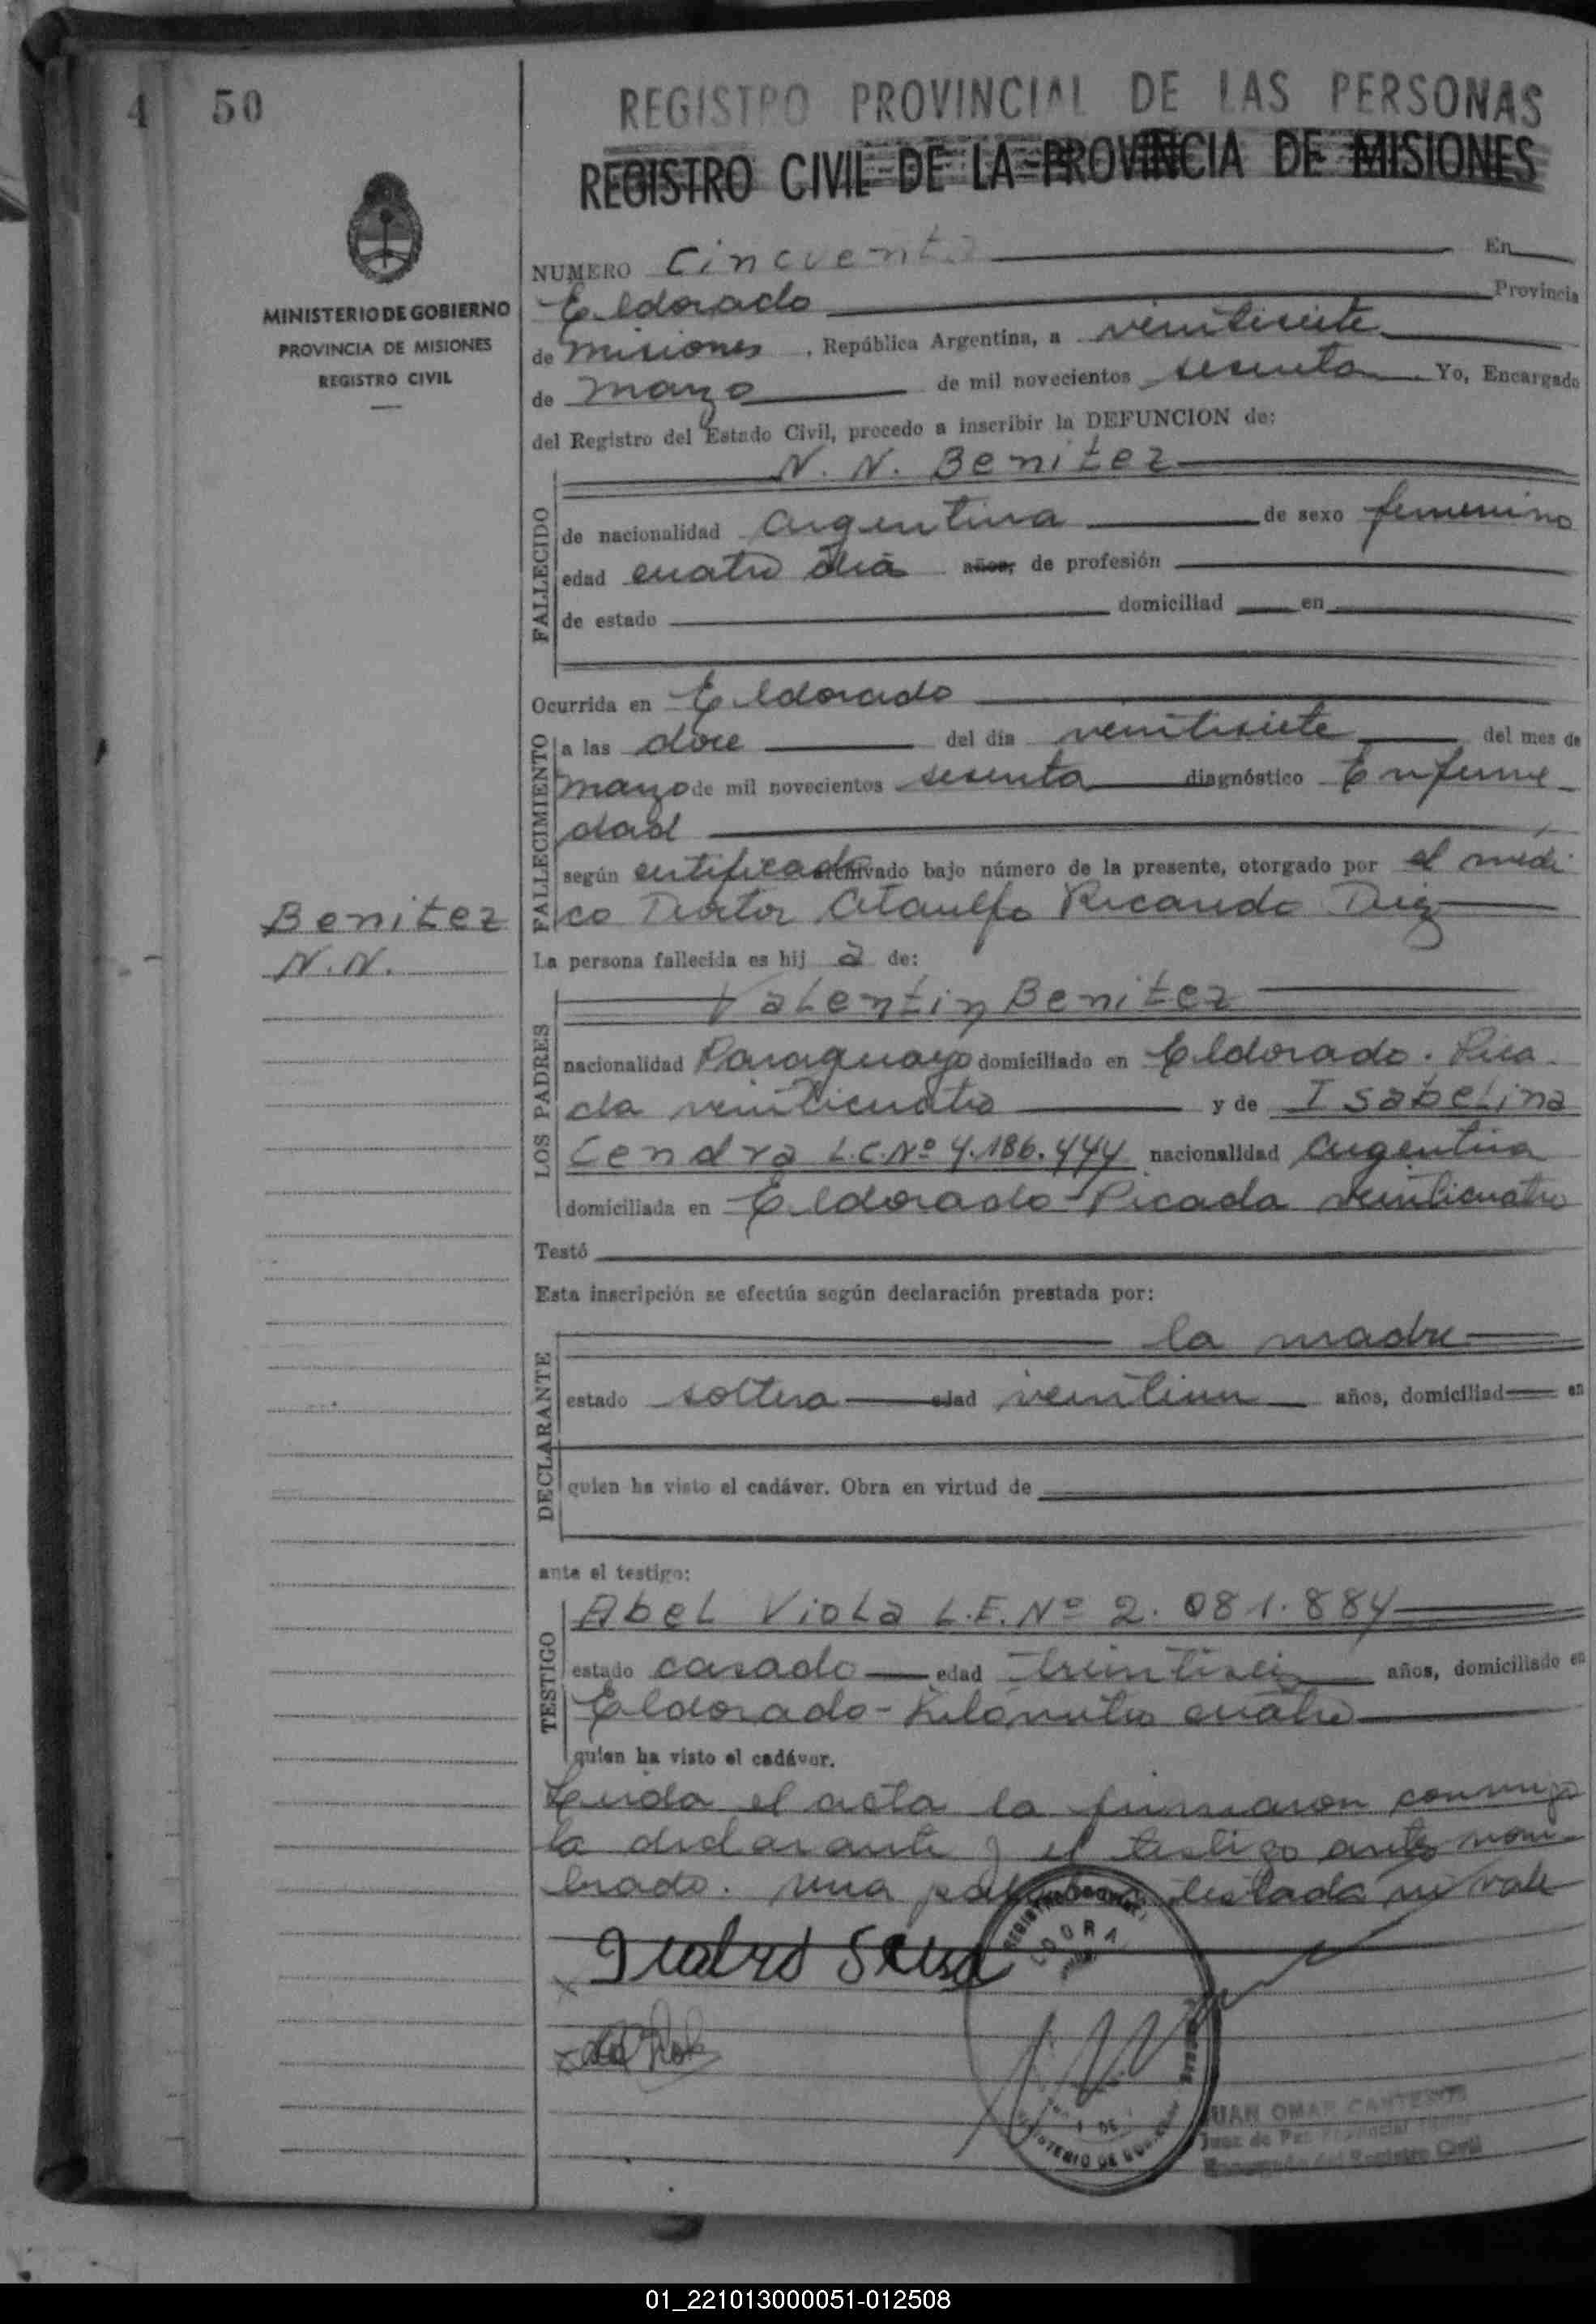 4 50
REGISTRO PROVINCIAL DE LAS PERSONAS
REGISTRO CIVIL DE LA PROVINCIA DE MISIONES
MINISTERIO DE GOBIERNO
PROVINCIA DE MISIONES
REGISTRO CIVIL
NUMERO Cincuenta En
Eldorado Provincia
de Misiones, República Argentina, a veintisiete
de marzo de mil novecientos sesenta. Yo, Encargado
del Registro del Estado Civil, procedo a inscribir la DEFUNCION de:
N. N. Benitez
FALLECIDO
de nacionalidad argentina de sexo femenino
edad cuatro dia años, de profesión
de estado domiciliad en
Ocurrida en Eldorado
FALLECIMIENTO
a las doce del día veintisiete del mes de
marzo de mil novecientos sesenta diagnóstico Enferme
dad
según certificado archivado bajo número de la presente, otorgado por el médi
co Doctor Ataulfo Ricardo Diez
Benitez
N.N.
La persona fallecida es hij a de:
LOS PADRES
Valentin Benitez
nacionalidad Paraguayo domiciliado en Eldorado. Pica
da veinticuatro y de Isabelina
Cendra L.C.Nº 4.186.444 nacionalidad argentina
domiciliada en Eldorado-Picada veinticuatro
Testó
Esta inscripción se efectúa según declaración prestada por:
DECLARANTE
la madre
estado soltera edad veintiun años, domiciliad en
quien ha visto el cadáver. Obra en virtud de
ante el testigo:
TESTIGO
Abel Viola L.E.Nº 2.081.884
estado casado edad treintiseis años, domiciliado en
Eldorado-Kilómetro cuatro
quien ha visto el cadáver.
Leida el acta la firmaron conmigo
la declarante y el testigo antes nom-
brado. Una palabra testada no vale
JUAN OMAR
Juez de Paz
Encargado del Registro Civil
01_221013000051-012508